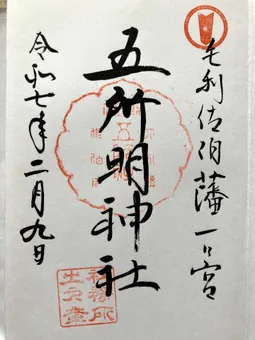 毛利佐伯藩一ノ宮
五所明神社
令和七年二月九日
社務所